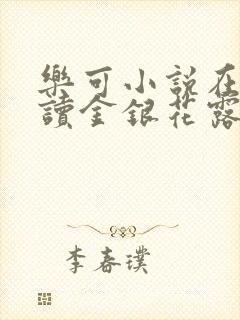 樂可小說在
讀金銀花露
李春璞